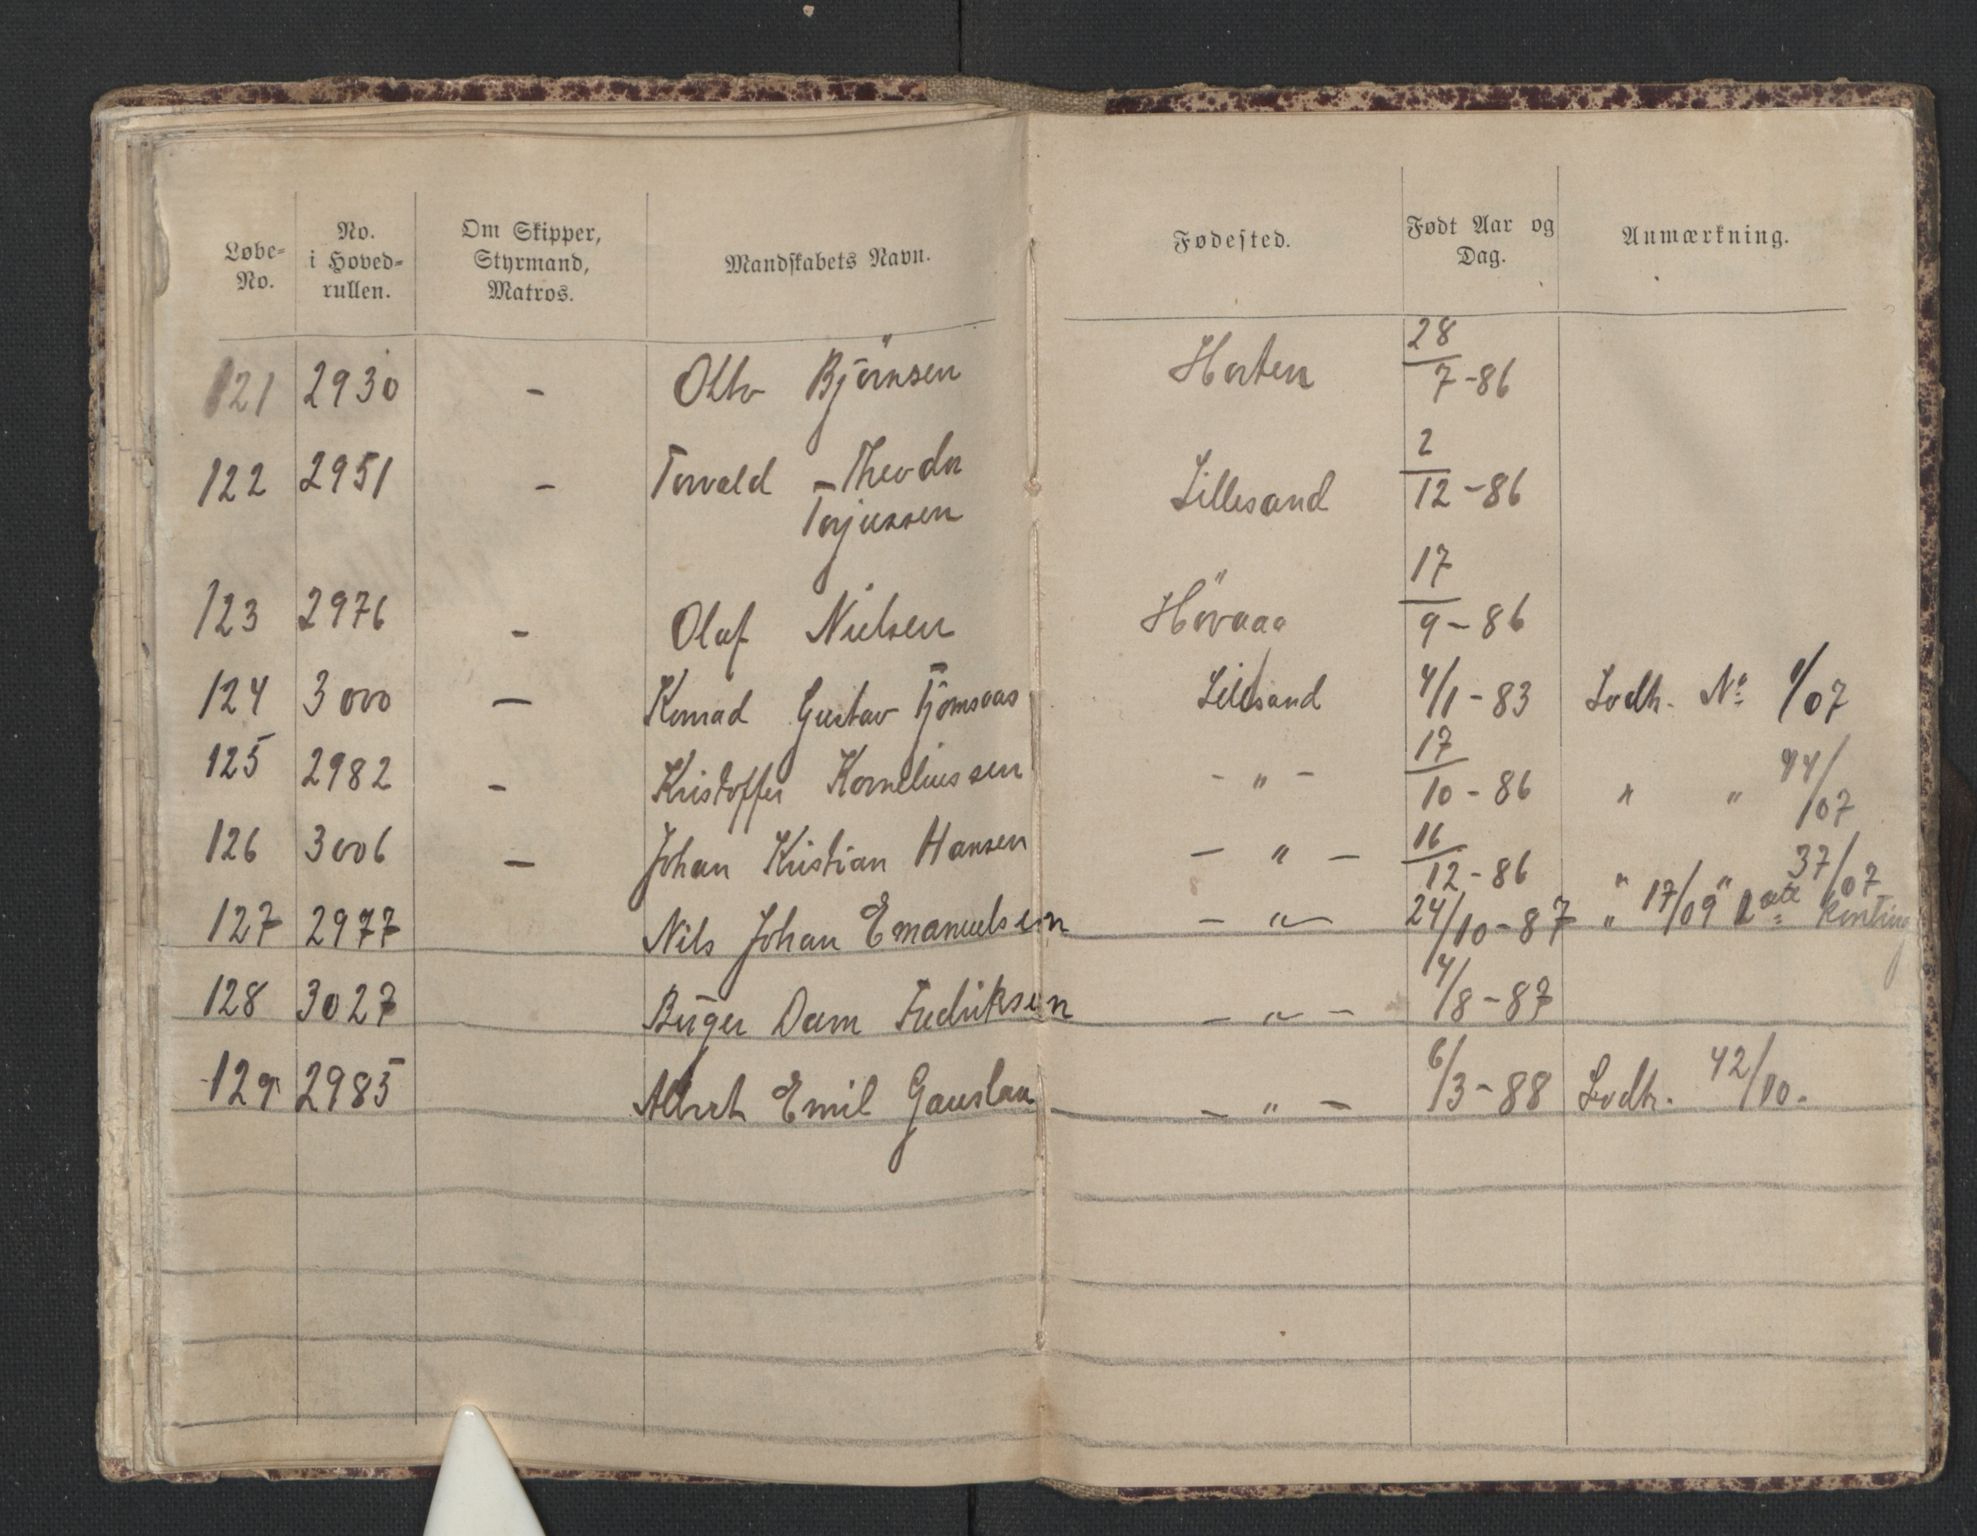 Løbe-No. No. i Hoved-rullen. Om Skipper, Styrmand, Matros. Mandskabets Navn. Fødested. Født Aar og Dag. Anmærkning.
121 2930 - Otto Björnsen Horten 28/7-86
122 2951 - Torvald Theodor Torjussen Lillesand 2/12-86
123 2976 - Olaf Nielsen Hövaag 17/9-86
124 3000 - Konrad Gustav Tjömsaas Lillesand 4/1-83 Lodh. No 1/07
125 2982 - Kristoffer Korneliussen - " - 17/10-86 " " 44/07
126 3006 - Johan Kristian Hansen - " - 16/12-86 " " 37/07
127 2977 Nils Johan Emanuelsen - " - 24/10-87 " 17/09
128 3027 Birger Dam Fredriksen - " - 4/8-87
129 2985 Albert Emil Gauslaa - " - 6/3-88 Lodh. 42/10.